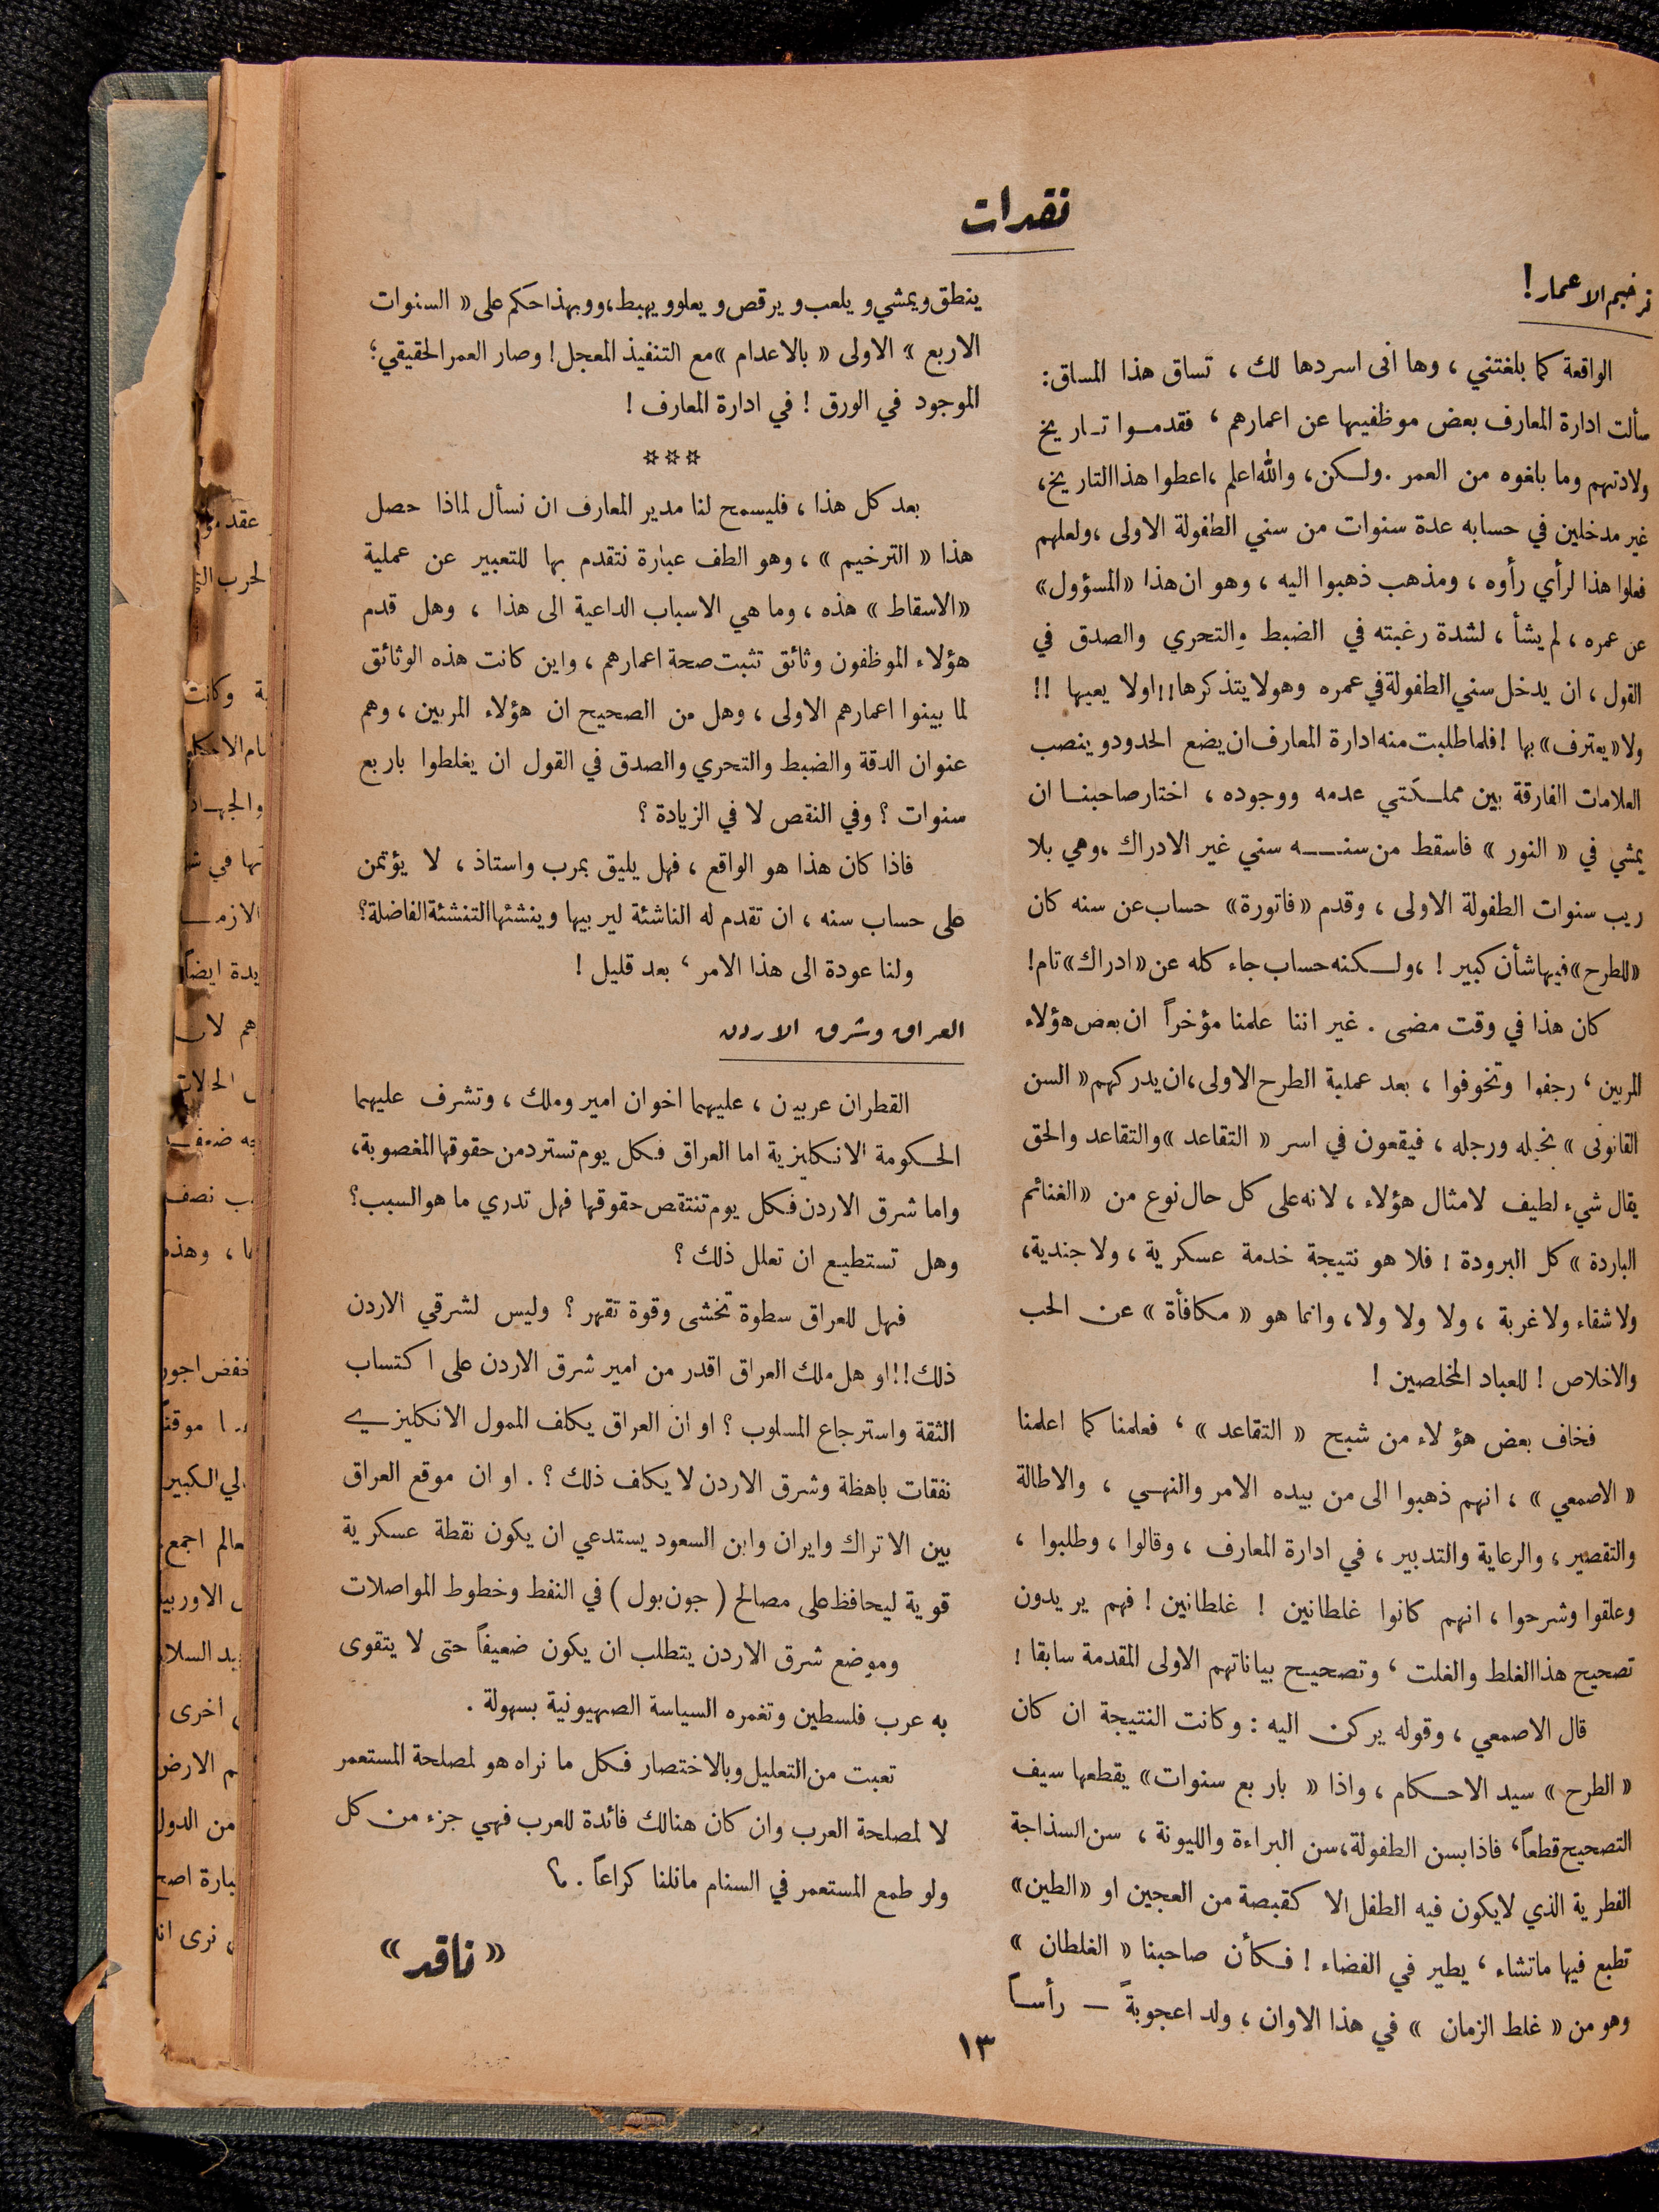 نقدات
ترخيم الاعمار !
الواقعة كما بلغتني ، وها انى اسردها لك ، تساق هذا المساق :
سألت ادارة المعارف بعض موظفيها عن اعمارهم ، فقدموا تاريخ
ولادتهم وما بلغوه من العمر . ولكن ، والله اعلم ، اعطوا هذا التاريخ ،
غير مدخلين في حسابه عدة سنوات من سني الطفولة الاولى ، ولعلهم
فعلوا هذا لرأي رأوه ، ومذهب ذهبوا اليه ، وهو ان هذا «المسؤول»
عن عمره ، لم يشأ ، لشدة رغبته في الضبط والتحري والصدق في
القول ، ان يدخل سني الطفولة في عمره وهو لا يتذكرها !! او لا يعيها !!
ولا «يعترف» بها ! فلما طلبت منه ادارة المعارف ان يضع الحدود وينصب
العلامات الفارقة بين مملكتي عدمه ووجوده ، اختار صاحبنا ان
يمشي في « النور » فاسقط من سنه سني غير الادراك ، وهي بلا
ريب سنوات الطفولة الاولى ، وقدم «فاتورة» حساب عن سنه كان
«للطرح» فيها شأن كبير ! ، ولكنه حساب جاء كله عن «ادراك» تام !
كان هذا في وقت مضى . غير اننا علمنا مؤخراً ان بعض هؤلاء
المربين ، رجفوا وتخوفوا ، بعد عملية الطرح الاولى ، ان يدركهم « السن
القانونى » بخيله ورجله ، فيقعون في اسر « التقاعد » والتقاعد والحق
يقال شيء لطيف لامثال هؤلاء ، لانه على كل حال نوع من « الغنائم
الباردة » كل البرودة ! فلا هو نتيجة خدمة عسكرية ، ولا جندية ،
ولا شقاء ولا غربة ، ولا ولا ولا ، وانما هو « مكافأة » عن الحب
والاخلاص ! للعباد المخلصين !
فخاف بعض هؤلاء من شبح « التقاعد » ، فعلمنا كما اعلمنا
« الاصمعي » ، انهم ذهبوا الى من بيده الامر والنهي ، والاطالة
والتقصير ، والرعاية والتدبير ، في ادارة المعارف ، وقالوا ، وطلبوا ،
وعلقوا وشرحوا ، انهم كانوا غلطانين ! غلطانين ! فهم يريدون
تصحيح هذا الغلط والغلت ، وتصحيح بياناتهم الاولى المقدمة سابقا !
قال الاصمعي ، وقوله يركن اليه : وكانت النتيجة ان كان
« الطرح » سيد الاحكام ، واذا « باربع سنوات » يقطعها سيف
التصحيح قطعاً ، فاذا بسن الطفولة ، سن البراءة والليونة ، سن السذاجة
الفطرية الذي لايكون فيه الطفل الا كقبصة من العجين او « الطين »
تطبع فيها ماتشاء ، يطير في الفضاء ! فكأن صاحبنا « الغلطان »
وهو من « غلط الزمان » في هذا الاوان ، ولد اعجوبةً — رأساً
ينطق ويمشي ويلعب ويرقص ويعلو ويهبط ، ووبهذا حكم على « السنوات
الاربع » الاولى « بالاعدام » مع التنفيذ المعجل ! وصار العمر الحقيقي ؛
الموجود في الورق ! في ادارة المعارف !
***
بعد كل هذا ، فليسمح لنا مدير المعارف ان نسأل لماذا حصل
هذا « الترخيم » ، وهو الطف عبارة نتقدم بها للتعبير عن عملية
« الاسقاط » هذه ، وما هي الاسباب الداعية الى هذا ، وهل قدم
هؤلاء الموظفون وثائق تثبت صحة اعمارهم ، واين كانت هذه الوثائق
لما بينوا اعمارهم الاولى ، وهل من الصحيح ان هؤلاء المربين ، وهم
عنوان الدقة والضبط والتحري والصدق في القول ان يغلطوا باربع
سنوات ؟ وفي النقص لا في الزيادة ؟
فاذا كان هذا هو الواقع ، فهل يليق بمرب واستاذ ، لا يؤتمن
على حساب سنه ، ان تقدم له الناشئة ليربيها وينشئها التنشئة الفاضلة ؟
ولنا عودة الى هذا الامر ، بعد قليل !
العراق وشرق الاردن
القطران عربيان ، عليهما اخوان امير وملك ، وتشرف عليهما
الحكومة الانكليزية اما العراق فكل يوم تسترد من حقوقها المغصوبة ،
واما شرق الاردن فكل يوم تنتقص حقوقها فهل تدري ما هو السبب ؟
وهل تستطيع ان تعلل ذلك ؟
فهل للعراق سطوة تخشى وقوة تقهر ؟ وليس لشرقي الاردن
ذلك !! او هل ملك العراق اقدر من امير شرق الاردن على اكتساب
الثقة واسترجاع المسلوب ؟ او ان العراق يكلف الممول الانكليزي
نفقات باهظة وشرق الاردن لا يكلف ذلك ؟ . او ان موقع العراق
بين الاتراك وايران وابن السعود يستدعي ان يكون نقطة عسكرية
قوية ليحافظ على مصالح ( جون بول ) في النفط وخطوط المواصلات
وموضع شرق الاردن يتطلب ان يكون ضعيفاً حتى لا يتقوى
به عرب فلسطين وتغمره السياسة الصهيونية بسهولة .
تعبت من التعليل وبالاختصار فكل ما نراه هو لمصلحة المستعمر
لا لمصلحة العرب وان كان هنالك فائدة للعرب فهي جزء من كل
ولو طمع المستعمر في السنام مانلنا كراعاً . ؟
« ناقد »
١٣